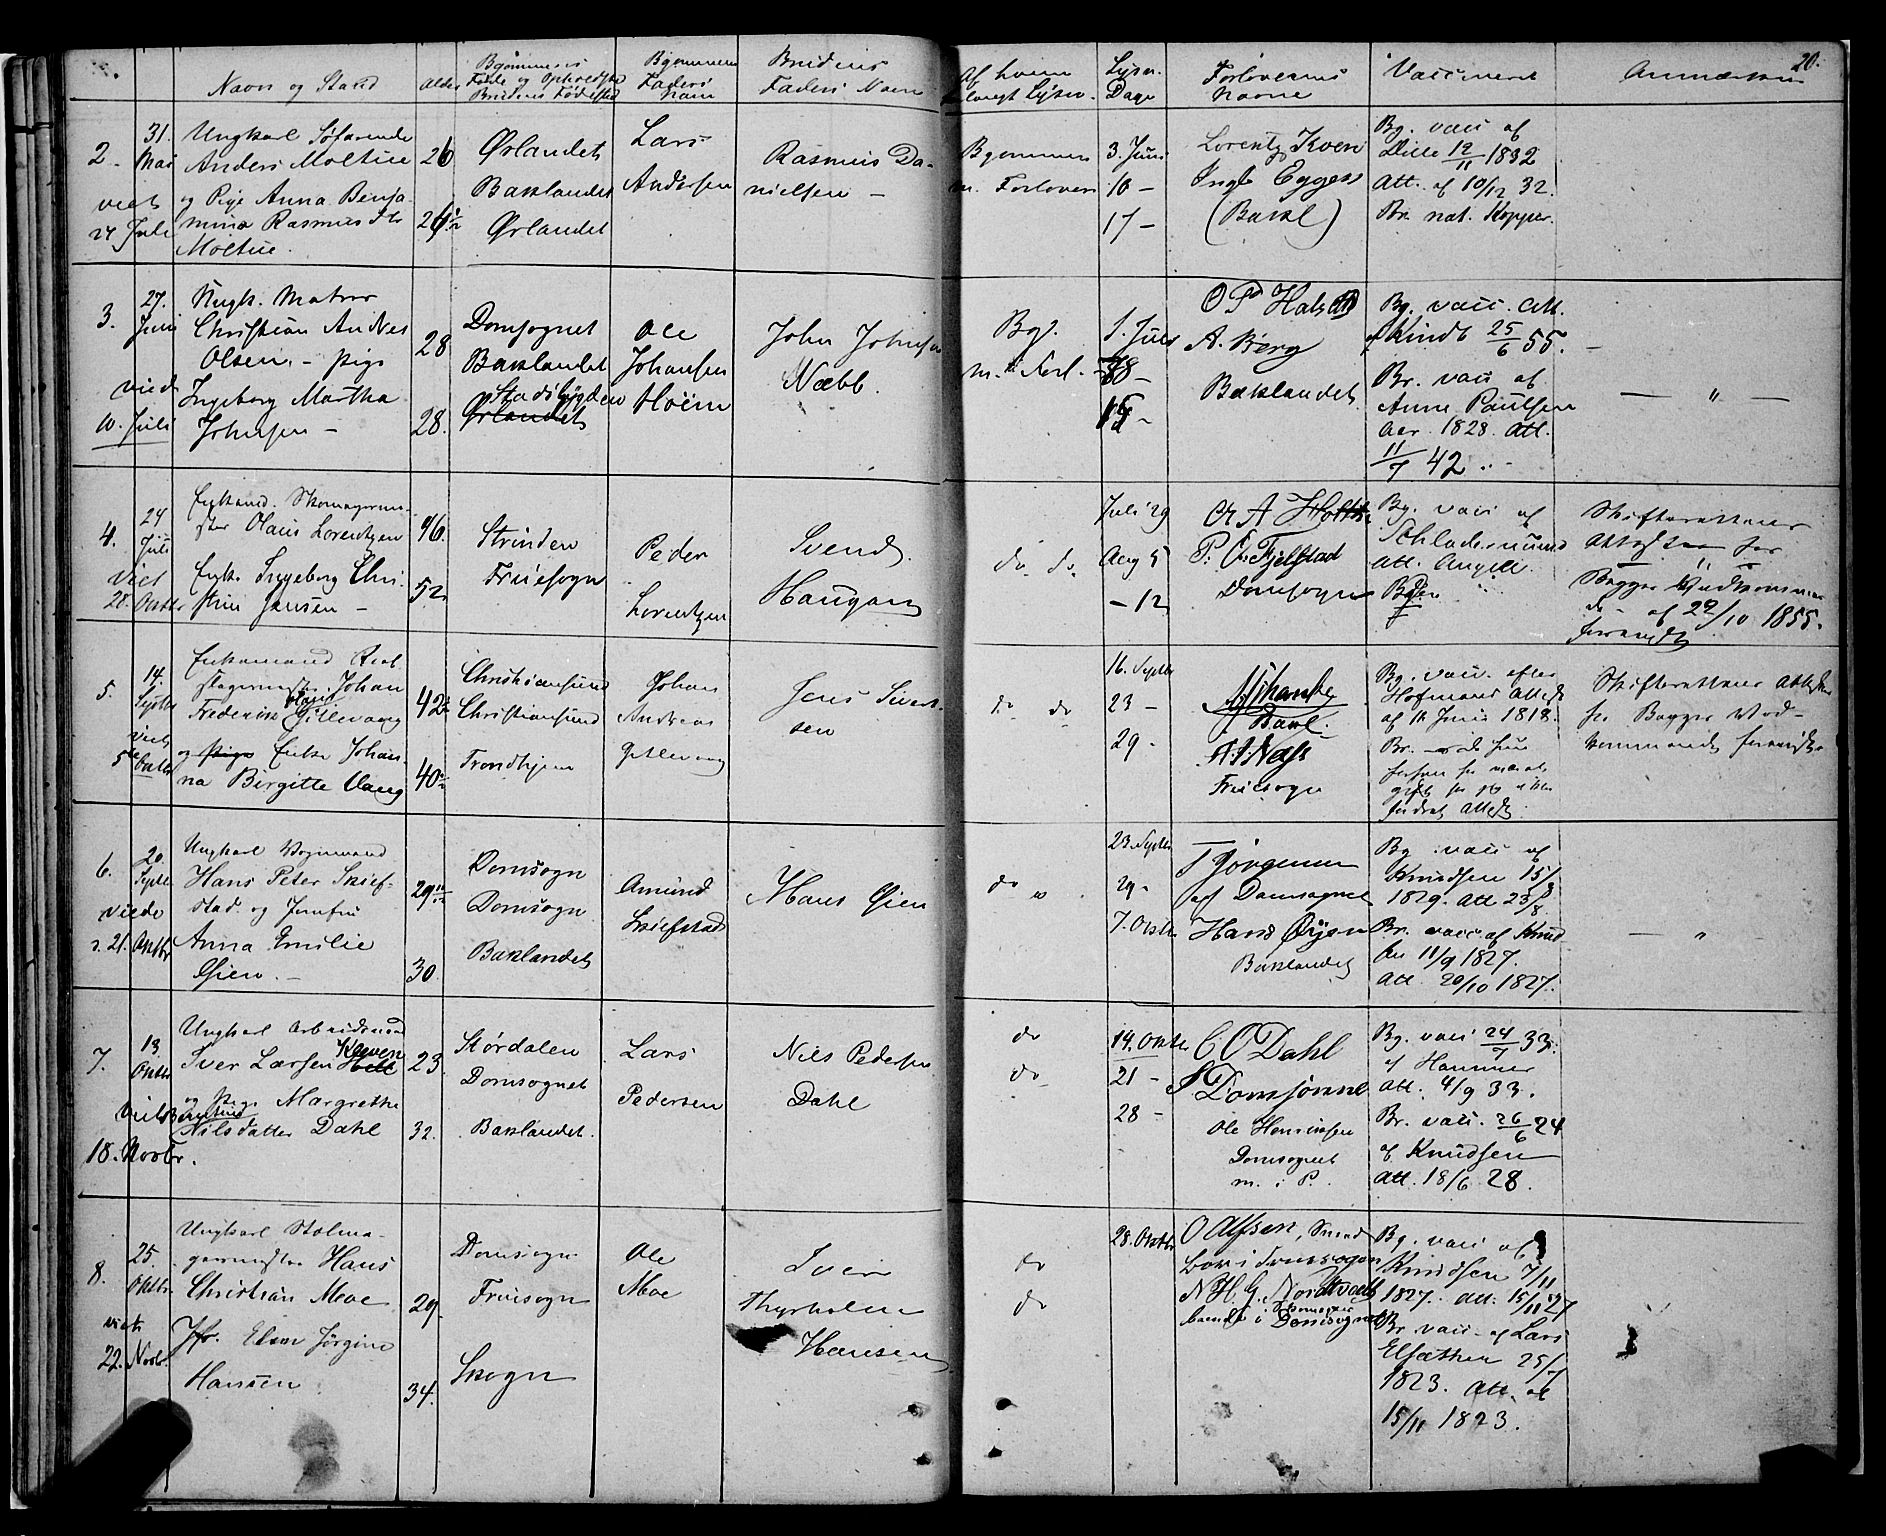 20.
Navn og Stand
Alder
Bgommens
Føde og Opholdssted
Brudens Fødested
Bgommens
Faders
Navn
Brudens
Faders Navn
Af hvem
forlangt Lysn.
Lysn.
Dage
Forlovernes
Navne
Vaccineret
2.
31.
Mai
viet
24 Juli
Ungkarl Søfarende
Anders Moltue
og Pige Anna Benja-
mina Rasmusdtr
Moltue.
26
26 1/2
Ørlandet
Baklandet
Ørlandet
Lars
Andersen
Rasmus Da-
nielsen –
Bgommen
m. Forlover
3. Juni
10 –
17 –
Lorentz Kven
Ingb Eggen
(Bakl)
Bg. vacc af
Dille 12/11 1832
Att. af 10/12 32.
Br. nat. Kopper.
3.
27.
Juni
viet
10. Juli
Ungk. Matros
Christian Andres
Olsen. – Pige
Ingeborg Martha
Johnsen –
28
28.
Domsognet
Baklandet
Stadsbygden
Ørlandet
Ole
Johansen
Hoem
John Johnsen
Næbb.
Bg.
m. Forl.
1. Juli
8 –
15 –
A. Berg
Baklandet
Bg. vacc. Att.
Kindt 25/6 55.
Br. vacc af
Anne Paulsen
Aar 1828. Att.
11/7 42
– " –
4.
24
Juli
Viet
Oktbr
Enkemd. Skomagerme-
ster Olaus Lorentzen
Enke Ingeborg Chri-
stine Jansen –
46.
52
Strinden
Fruesogn
Peder
Lorentzen
Svend
Haugan
do do
Juli 29
Aug 5
– 12
P. Chr. Fjelstad
Domsogn
Bg. vacc af
Att. Angell
Skifterettens
Attester for
Begges Vedkommen-
de af 29/10 1855.
forevist
5.
14.
Septbr
viet
Oktbr
Enkemand Reb-
slagermester Johan
Frederik Gitlevang
og Pige Enke Johan-
na Birgitte Vang
42
40
Christiansund
Christiansund
Trondhjem
Johan
Andreas
Gitlevang
Jens Sivert-
sen
do do
16. Septbr
23 –
29 –
Bakl.
Fruesogn
Bg. vacc. efter
Hofmans Attest
af 14 Juni 1818.
Skifterettens Attester
for Begges Ved-
kommende forevist.
6.
20.
Septbr
viede
21. Oktbr
Ungkarl Vognmand
Hans Peter Skief-
stad og Jomfru
Anna Emilie
Øien. –
29
30.
Domsogn
Domsogn
Baklandet
Amund
Skiefstad
Hans Øien
do "
23. Septbr
29 –
7. Oktbr
T Jörgensen
af Domsognet
Hans Øyen
Baklandet
Bg. vacc af
Knudsen 15/8
1829. Att 23/8
Br. vacc af Knud
sen 11/9 1827.
Att. 20/10 1827.
– "
7.
13
Oktbr
viet
18. Novbr.
Ungkarl Arbeidsmand
Iver Larsen Hell
Kleven
og Pige Margrethe
Berntine
Nilsdatter Dahl
23.
32.
Størdalen
Domsognet
Baklandet.
Lars
Pedersen
Nils Pedersen
Dahl
do
do
14. Oktbr
21 –
28 –
C O Dahl
Domsognet
Ole Henriksen
Domsognet
m. i P.
Bg. vacc 24/7 33.
af Hammer
Att. 4/9 33.
Br. vacc. 26/6 24
af Knudsen
Att. 18/6 28.
8.
25.
Oktbr.
viet
22. Novbr.
Ungkarl Stolma-
germester Hans
Christian Moe
Jfr. Elen Jörgine
Hansen
29.
34.
Domsogn
Fruesogn
Skogn
Ole
Moe
Iver
Thyrholm
Hansen
do
do
28. Oktbr
O Alfsen, Smed
boe i Fruesogn
N H G Nordtvedt
boende i Domsognet
Bg. vacc af
Knudsen 7/11
1827. Att: 15/11 27
Br. vacc. af Lars
Elsæther 25/7
1823. Att. af
15/11 1823.